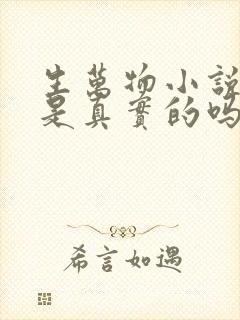 生萬物小說
是真實的嗎
希言如遇